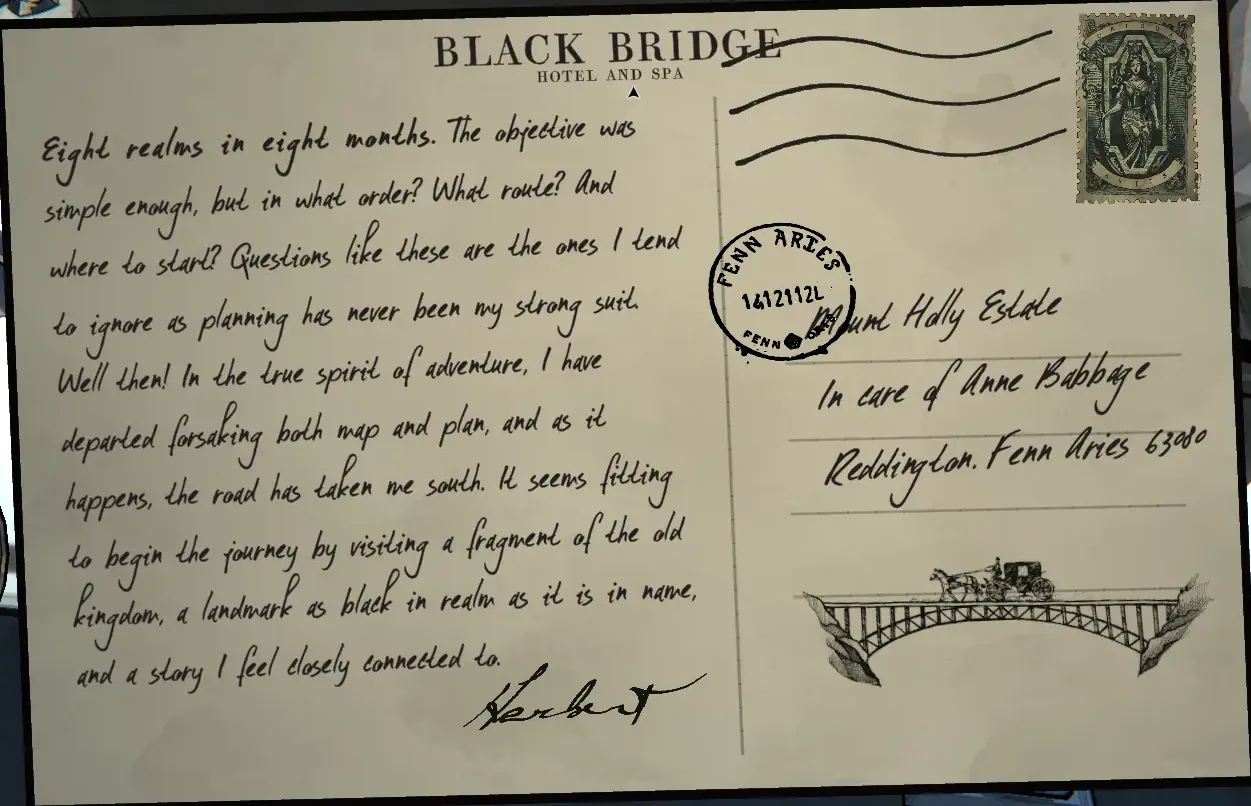 BLACK BRIDGE
HOTEL AND SPA
Eight realms in eight months. The objective was
simple enough, but in what order? What route? And
where to start? Questions like these are the ones I tend
to ignore as planning has never been my strong suit.
Well then! In the true spirit of adventure, I have
departed forsaking both map and plan, and as it
happens, the road has taken me south. It seems fitting
to begin the journey by visiting a fragment of the old
kingdom, a landmark as black in realm as it is in name,
and a story I feel closely connected to.
Herbert
FENN ARIES
FENN
Mount Holly Estate
In care of Anne Babbage
Reddington, Fenn Aries 63080